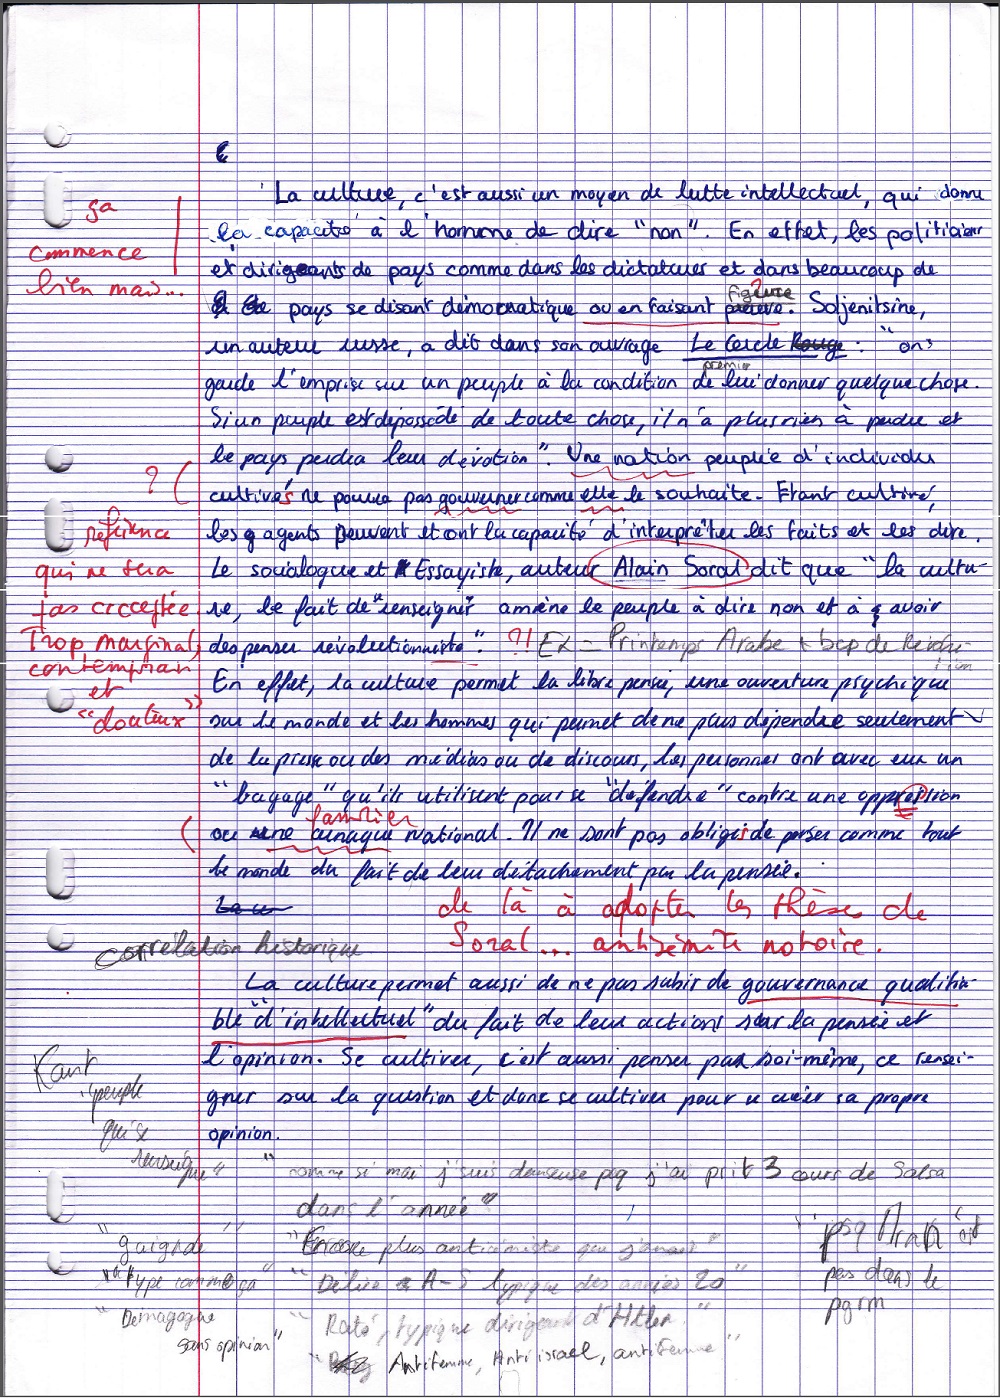 La culture, c'est aussi un moyen de lutte intellectuel, qui donne
la capacité à l'homme de dire "non". En effet, les politicien
et dirigeants de pays comme dans les dictatures et dans beaucoup de
pays se disant démocratique ou en faisant preuve. Soljenitsine,
figure
un auteur russe, a dit dans son ouvrage Le Cercle Rouge : "on
premier
garde l'emprise sur un peuple à la condition de lui donner quelque chose.
Si un peuple est dépossédé de toute chose, il n'a plus rien à perdre et
le pays perdra leur dévotion". Une nation peuplée d'individu
cultivés ne pourra pas gouverner comme elle le souhaite. Etant cultivé,
les agents peuvent et ont la capacité d'interpréter les faits et les dire.
Le sociologue et Essayiste, auteur Alain Soral dit que "la cultu-
re, le fait de "renseigner" amène le peuple à dire non et à avoir
des penser révolutionniste". ?! Ex = Printemps Arabe + bcp de Révolu-
tion
En effet, la culture permet la libre pensée, une ouverture psychique
sur le monde et les hommes qui permet de ne plus dépendre seulement
de la presse ou des médias ou de discours, les personnes ont avec eux un
"bagage" qu'ils utilisent pour se "défendre" contre une oppression
familier
ou une arnaque national. Il ne sont pas obligés de penser comme tout
le monde du fait de leur détachement par la pensée.
de là à adopter les thèses de
Soral... antisémite notoire.
corrélation historique
La culture permet aussi de ne pas subir de gouvernance qualifia-
ble "d'intellectuel" du fait de leur actions sur la pensée et
l'opinion. Se cultiver, c'est aussi penser par soi-même, ce rensei-
gner sur la question et donc se cultiver pour se créer sa propre
opinion.
"comme si moi j'suis danseuse pcq j'ai prit 3 cours de Salsa
dans l'année"
"Encore plus anticémiste que j'avais"
"Délire A-S typique des années 20"
Raté, typique dirigeant d'Hitler"
" Antifemme, Anti israel, antifemme"
ça
commence
bien mais...
?
référence
qui ne sera
pas acceptée
Trop marginal,
contemporain
et
"douteux"
Kant
"peuple
qui se
renseigne"
"guignole"
"type comme ça"
"Démagogue
sans opinion"
pas dans le
pgrm